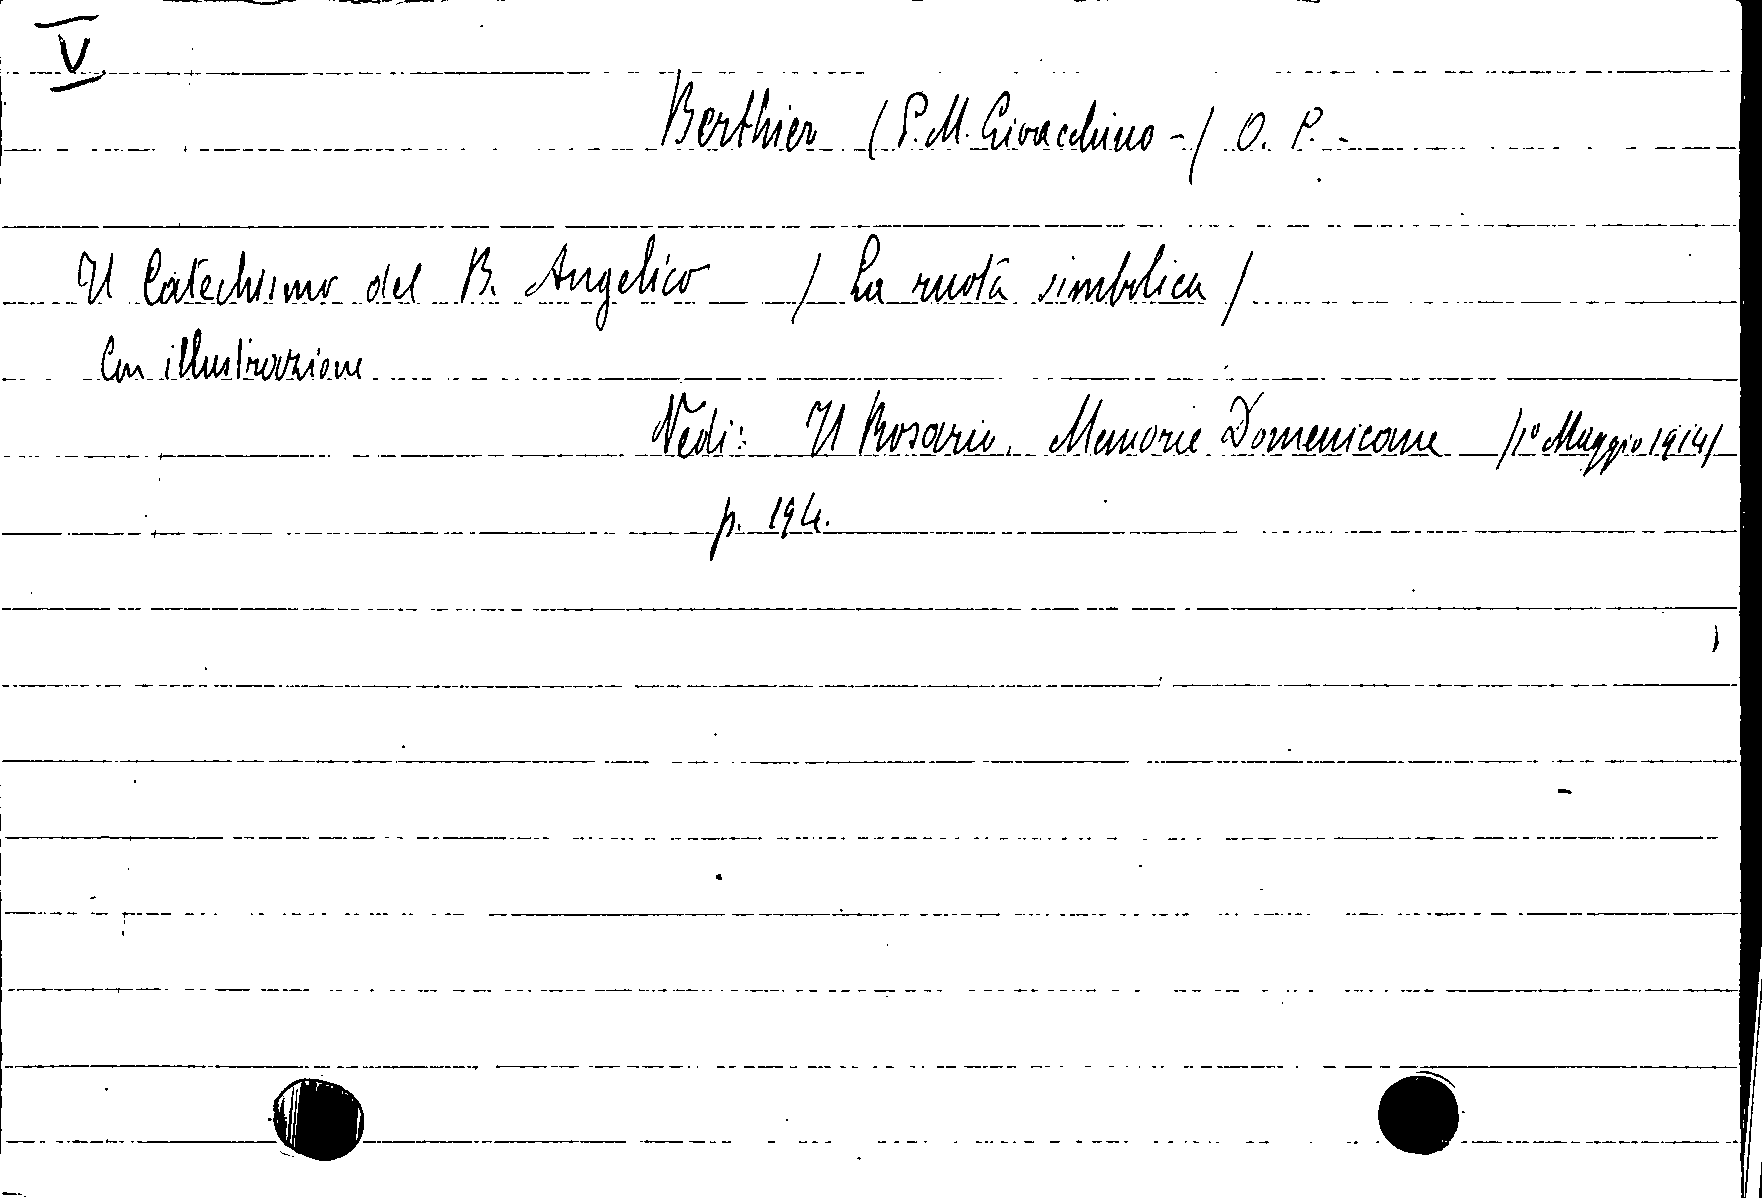 V
Berthier (P. M. Giovacchino -) O. P. -
Il Catechismo del B. Angelico (La ruota simbolica)
Con illustrazione
Vedi: Il Rosario. Memorie Domenicane (1° Maggio 1914)
p. 194.